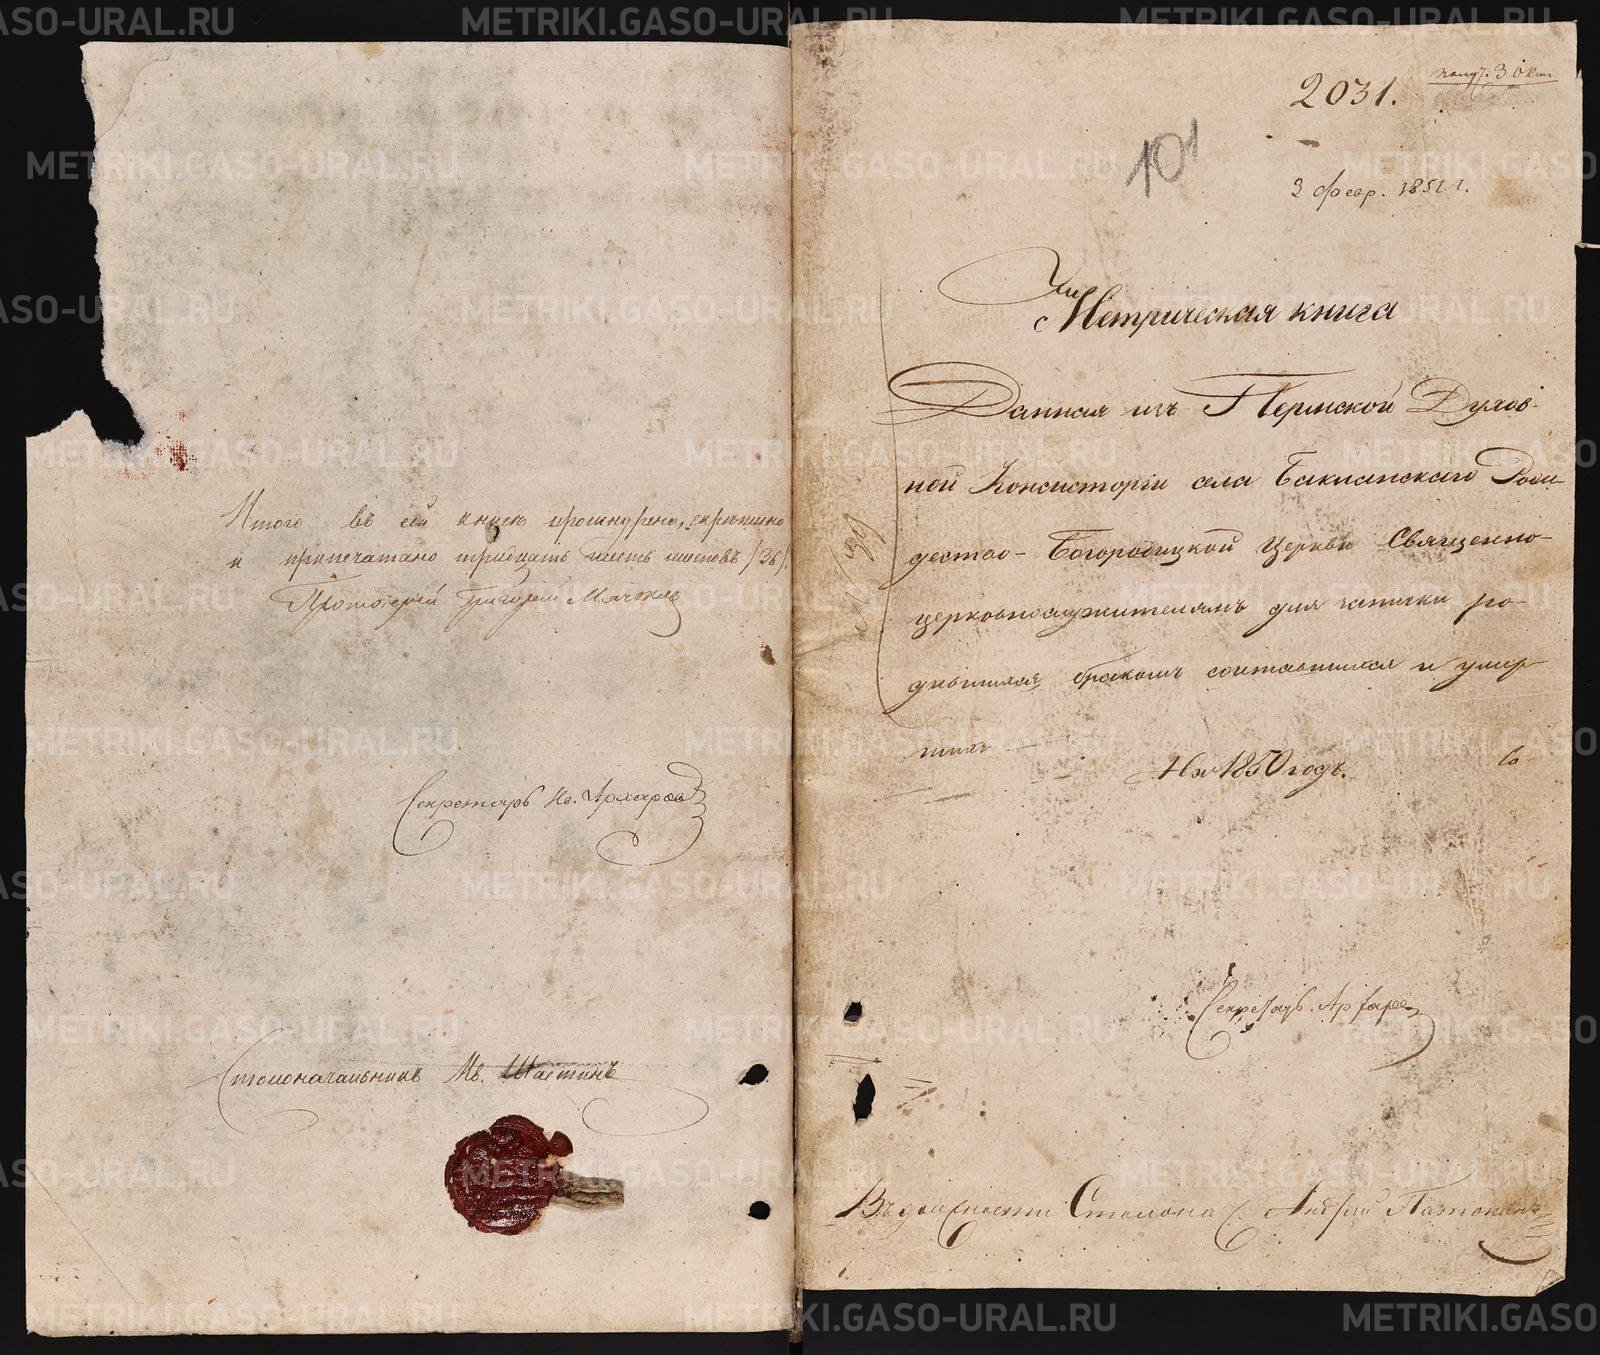 Итого въ сей книгѣ прошнурено, скрѣплено
и припечатано тридцать шесть листовъ /36/.
Протоіерей Григорій
Секретарь Ив. Архаровъ
Столоначальникъ Ив. Шастинъ
2031.
101
3 февр. 1851 г.
Метрическая книга
Данная изъ Пермской Духов-
ной Консисторіи села Бакланскаго Рож-
дество-Богородицкой Церкви Священно-
церковнослужителямъ для записки ро-
дившихся бракомъ сочетавшихся и умер-
шихъ
На 1850 годъ.
Секретарь Архаровъ
Въ должности Столона Андрей
METRIKI.GASO-URAL.RU